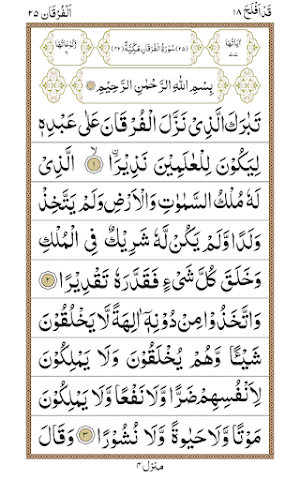 قَدْ اَفْلَحَ ۱۸
اَلْفُرْقَان ۲۵
اٰیَاتُهَا ۷۷
(۲۵) سُوْرَةُ الْفُرْقَانِ مَكِّيَّةٌ (۴۲)
رُكُوْعَاتُهَا ۶
بِسْمِ اللّٰهِ الرَّحْمٰنِ الرَّحِيْمِ
تَبٰرَكَ الَّذِيْ نَزَّلَ الْفُرْقَانَ عَلٰى عَبْدِهٖ
لِيَكُوْنَ لِلْعٰلَمِيْنَ نَذِيْرًا ۙ ۱ الَّذِيْ
لَهٗ مُلْكُ السَّمٰوٰتِ وَالْاَرْضِ وَلَمْ يَتَّخِذْ
وَلَدًا وَّلَمْ يَكُنْ لَّهٗ شَرِيْكٌ فِي الْمُلْكِ
وَخَلَقَ كُلَّ شَيْءٍ فَقَدَّرَهٗ تَقْدِيْرًا ۲
وَاتَّخَذُوْا مِنْ دُوْنِهٖٓ اٰلِهَةً لَّا يَخْلُقُوْنَ
شَيْـًٔا وَّهُمْ يُخْلَقُوْنَ وَلَا يَمْلِكُوْنَ
لِاَنْفُسِهِمْ ضَرًّا وَّلَا نَفْعًا وَّلَا يَمْلِكُوْنَ
مَوْتًا وَّلَا حَيٰوةً وَّلَا نُشُوْرًا ۳ وَقَالَ
منزل ۴